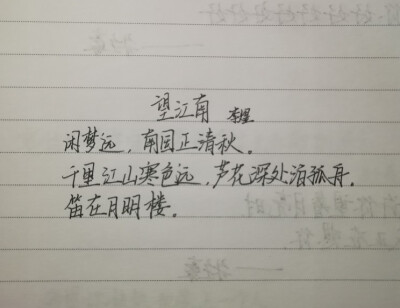 望江南
闲梦远，南国正清秋。
千里江山寒色远，芦花深处泊孤舟。
笛在月明楼。